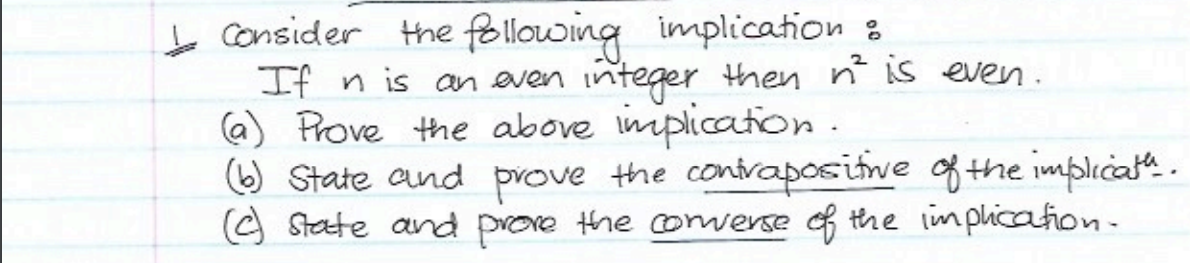 1 Consider the following implication :
If n is an even integer then n² is even.
(a) Prove the above implication.
(b) State and prove the contrapositive of the implicatn.
(c) State and prove the converse of the implication.